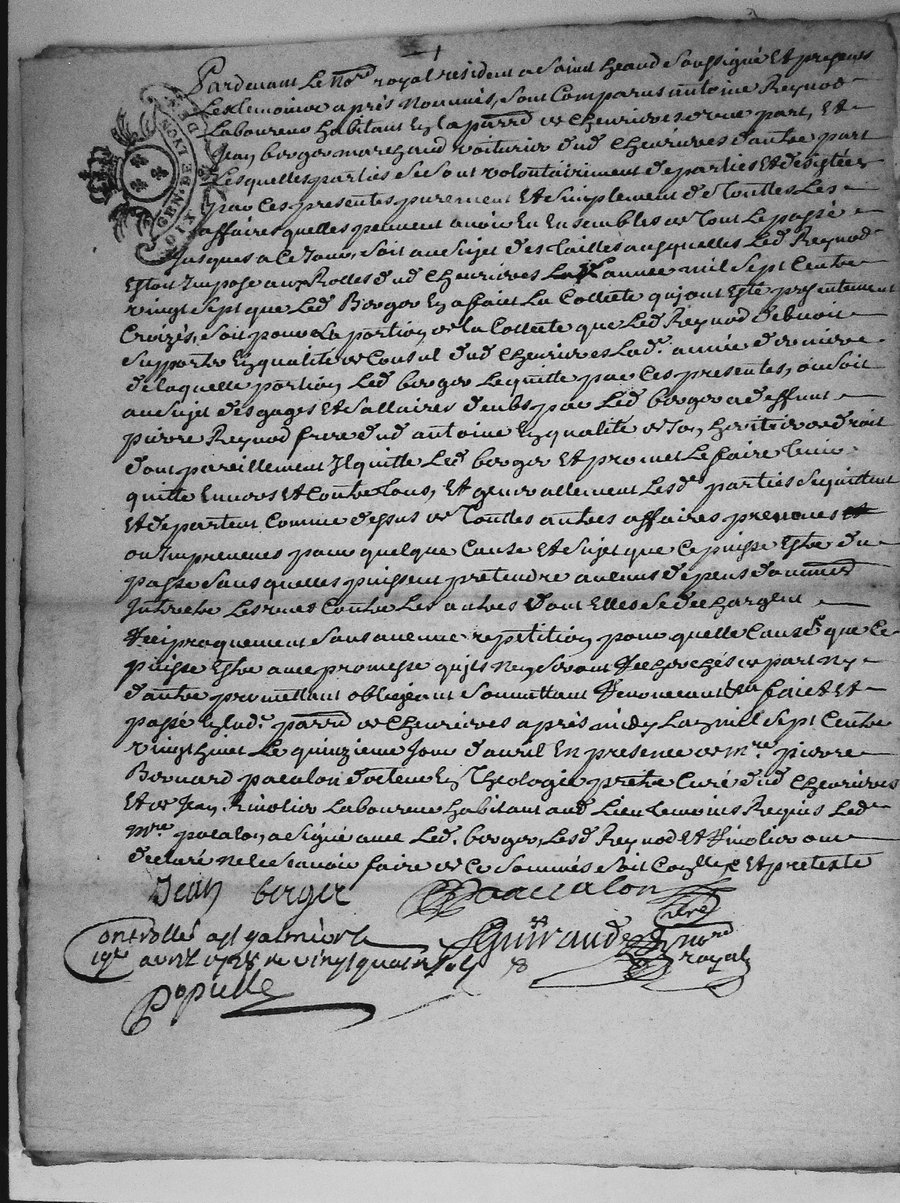 GEN. DE LYON DEUX
Pardevant Le No.re royal resident a Saint heand Soussigné Et presens
Les temoins apres Nommés, Sont Comparus antoine Reynod
Laboureur habitant En la parr.e de Chevrieres d'une part, Et
Jean berger marchand voiturier dud Chevrieres d'autre part
Lesquelles parties Se Sont volontairement departies Et desistées
par Ces presentes purement Et Simplement de Touttes Les
affaires quelles peuvent avoir Eu Ensembles de Tout Le passé
Jusques a Ce Jour, Soit au Sujet des Tailles ausquelles Led. Reynod
Estoit Imposé aux Rolles dud Chevrieres La année mil Sept Cents
vingt Sept que Led. Berger En a faict La Collecte qui ont Esté presentement
Croizés, Soit pour La portion de la Collecte que Led Reynod debvoit
Supporter En qualité de Consul dud Chevrieres Lad. année derniere
de laquelle portion Led. berger Le quitte par Ces presentes, ou Soit
au Sujet des gages Et Sallaires deubs par Led. berger a deffunt
pierre Reynod frere dud antoine En qualité de Son heritier de droit
dont pareillement Il quitte Led. berger Et promet Le faire tenir
quitte Envers Et Contre tous, Et generallement Lesd. parties Se quittent
Et departent Comme dessus de Touttes autres affaires prevues
ou Impreveues pour quelque Cause Et Sujet que Ce puisse Estre du
passé Sans quelles puissent pretendre aucuns depens dommages
Interests Les unes Contre Les autres dont Elles Se dechargent
Reciproquement Sans aucune repetition pour quelle Cause que Ce
puisse Estre avec promesse quils Ne Seront Recherchés de part Ny
d'autre promettant obligeant Soumettant Renonceant faict Et
passé En lad. parr.e de Chevrieres apres midy L'an mil Sept Cents
vingt huict Le quinzieme Jour d'avril En presence de M.re pierre
Berard pacalon docteur En Theologie pretre Curé dud Chevrieres
Et de Jean Rivolier Laboureur habitant aud Lieu temoins Requis Led.
M.re pacalon, a Signé avec Led. berger, Lesd. Reynod Et Rivolier ont
declaré ne le Scavoir faire de Ce Sommés
Jean berger Paccalon
Guiraud No.re
royal
Controllé a St galmier le
19e avril 1728 R vingt quatre Sols
Populle